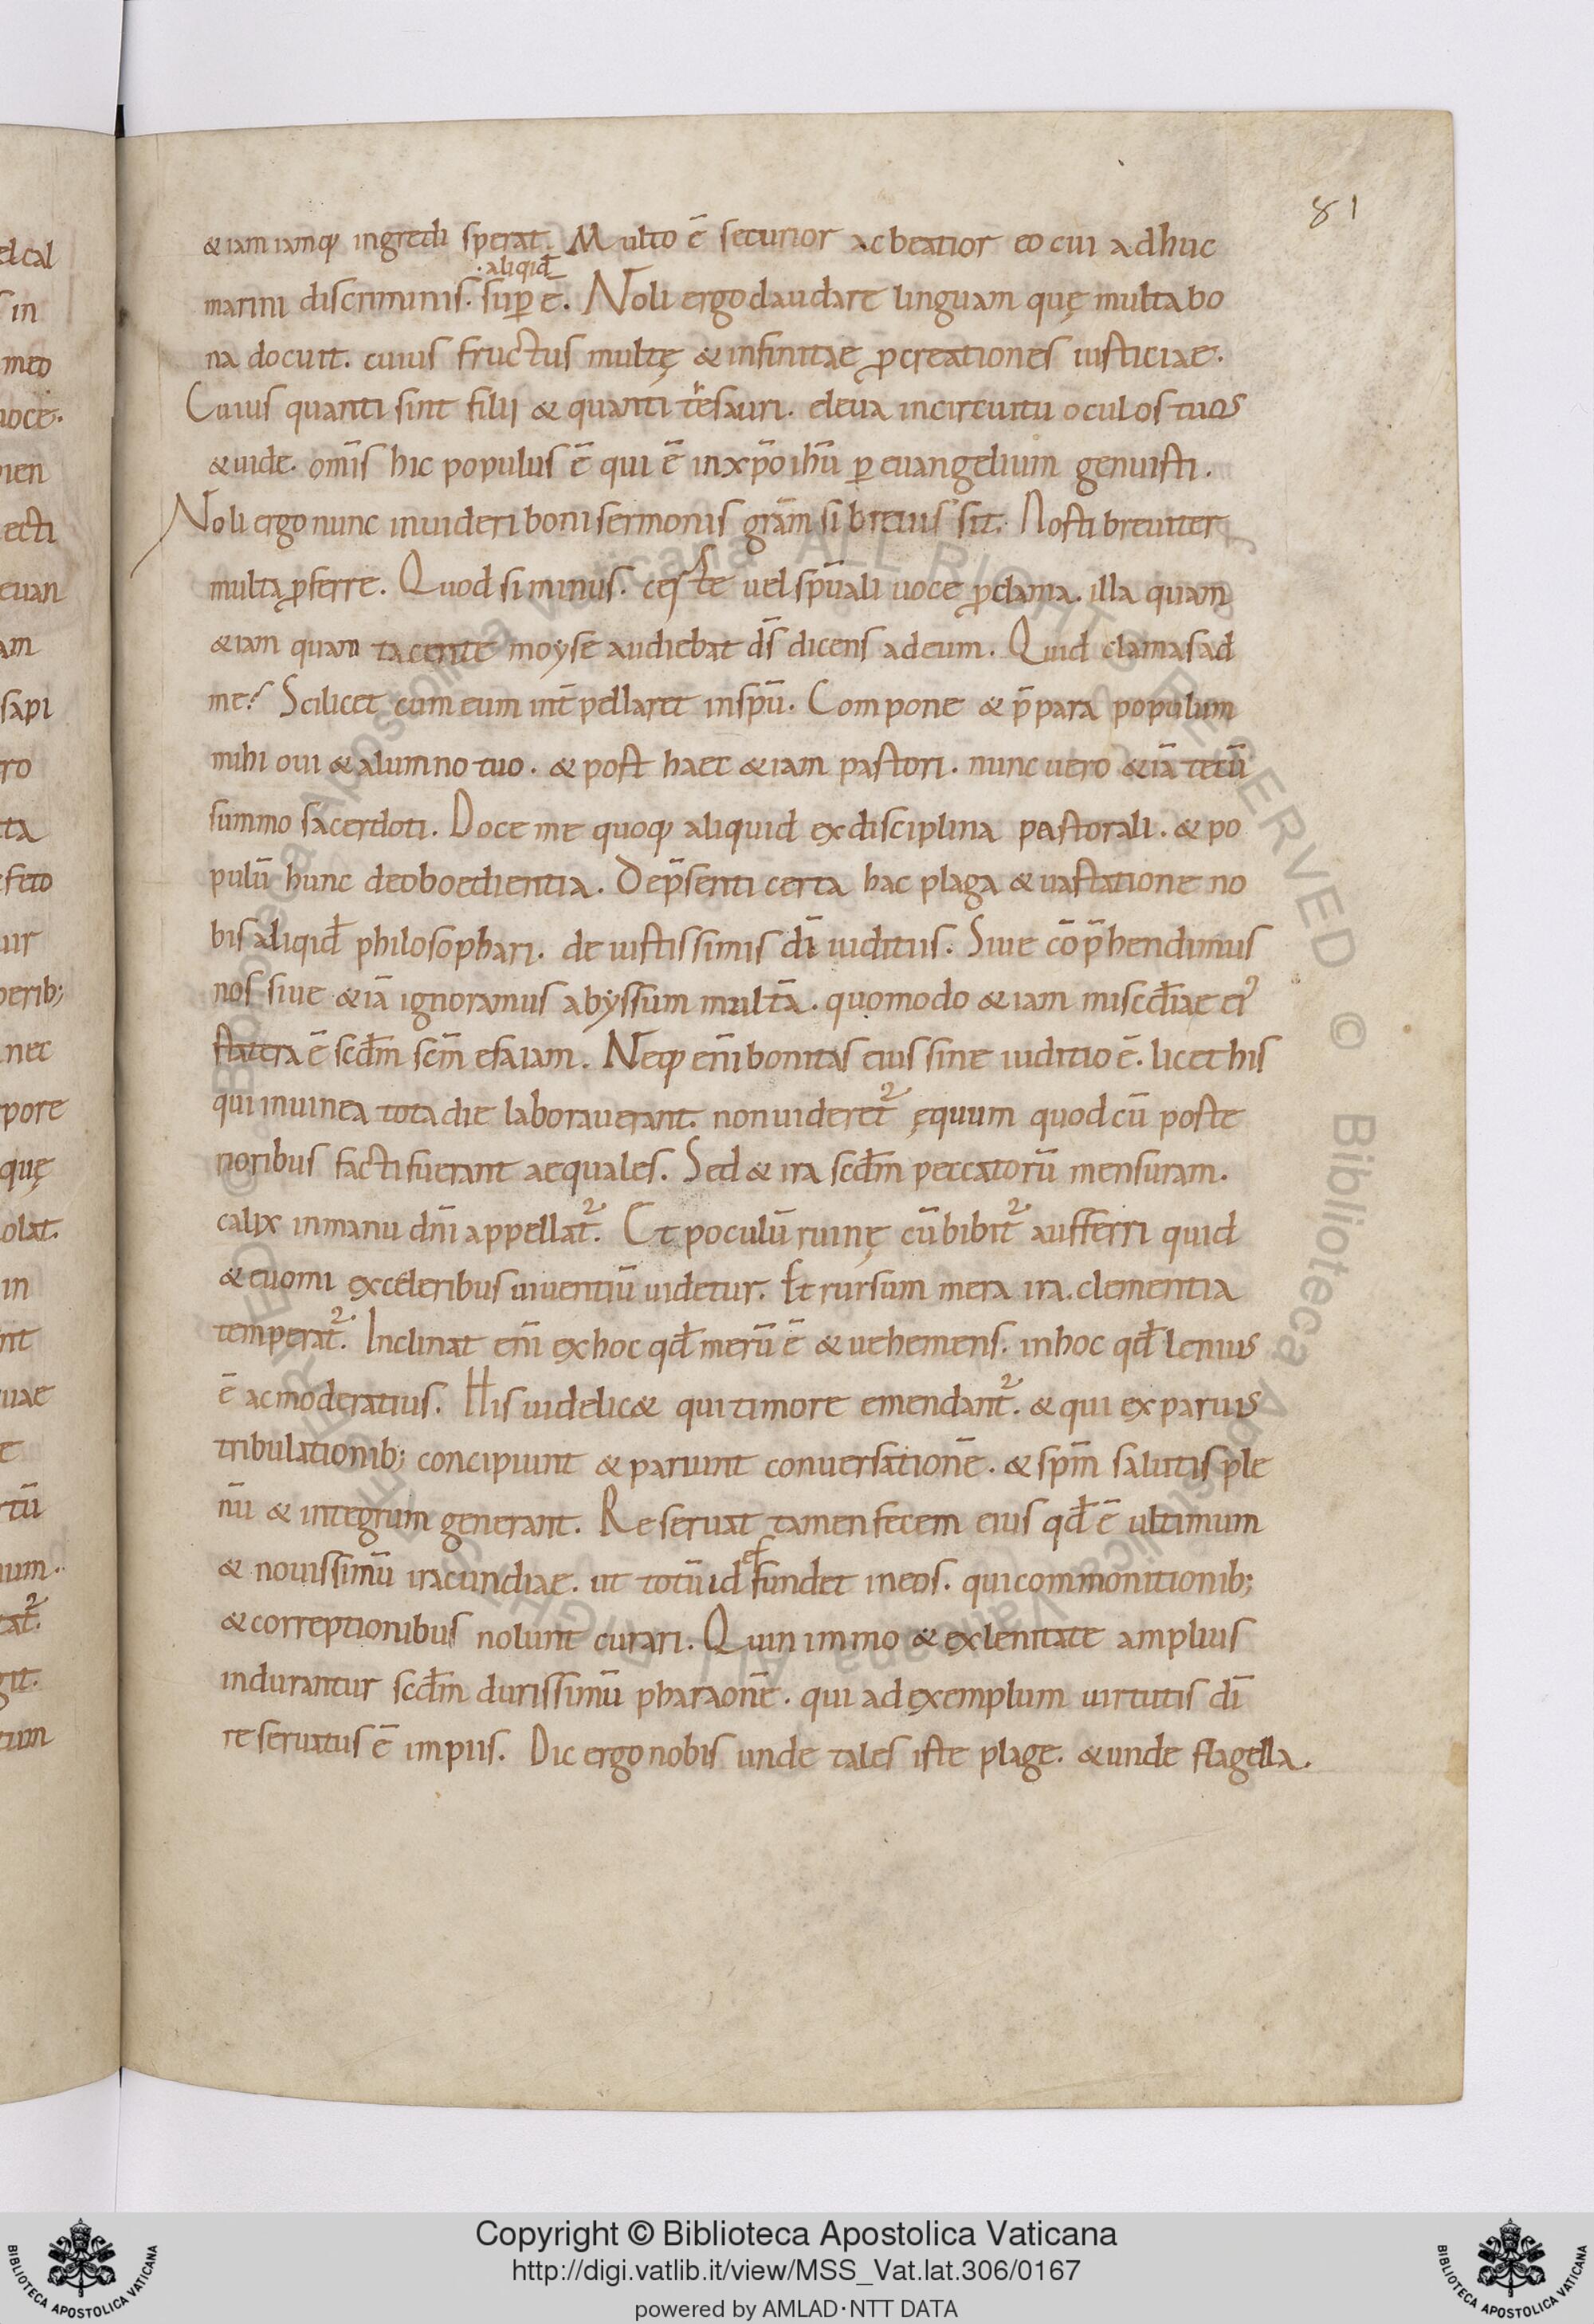 81
& iam iamq; ingredi sperat. Multo ē securior ac beatior eo cui adhuc
·aliqid̄
marini discriminis. suꝑ ē. Noli ergo claudare linguam quę multa bo
na docuit. cuius fructus multę & infinitae ꝓcreationes iusticiae.
Cuius quanti sint filii & quanti thesauri. eleua in circuitu oculos tuos
& uide. om̄is hic populus ē qui ē in xp̄o ihū ꝑ euangelium genuisti.
Noli ergo nunc inuideri boni sermonis grām si breuis sit. Nosti breuiter
multa ꝓferre. Quod si minus. certe uel spūali uoce ꝓclama. illa quam
&iam quam tacente moyse audiebat d̄s dicens ad eum. Quid clamas ad
me? Scilicet cum eum int̄pellaret in spū. Compone & p̄para populum
mihi oui & alumno tuo. & post haec &iam pastori. nunc uero &iā tecū
summo sacerdoti. Doce me quoq; aliquid ex disciplina pastorali. & po
pulū hunc de oboedientia. De p̄senti certa hac plaga & uastatione no
bis aliqid̄ philosophari. de iustissimis dī iuditiis. Siue cōp̄hendimus
nos siue &iā ignoramus abyssum multā. quomodo &iam misc̄diae ei᾿
statera ē scd̄m sc̄m esaiam. Neq; en̄i bonitas eius sine iuditio ē. licet his
qui in uinea tota die laborauerant. non uideret᷑ ęquum quod cū poste
rioribus facti fuerant aequales. Sed & ira scd̄m peccatorū mensuram.
calix in manu dn̄i appellat᷑. Et poculū ruinę cū bibit᷑ aufferri quid
& euomi exceleribus uiuentiū uidetur. Et rursum mera ira. clementia
temperat᷑. Inclinat en̄i ex hoc qd̄ merū ē & uehemens. in hoc qd̄ lenius
ē ac moderatius. His uidelic& qui timore emendant᷑. & qui ex paruis
tribulationib; concipiunt & pariunt conuersationē. & sp̄m salutis ple
nū & integrum generant. Reseruat tamen fecem eius qd̄ ē ultimum
& nouissimū iracundiae. ut totū id effundet in eos. qui commonitionib;
& correptionibus nolunt curari. Quin immo & ex lenitate amplius
indurantur scd̄m durissimū pharaonē. qui ad exemplum uirtutis dī
reseruatus ē impiis. Dic ergo nobis unde tales iste plage. & unde flagella.
Copyright © Biblioteca Apostolica Vaticana
http://digi.vatlib.it/view/MSS_Vat.lat.306/0167
powered by AMLAD·NTT DATA